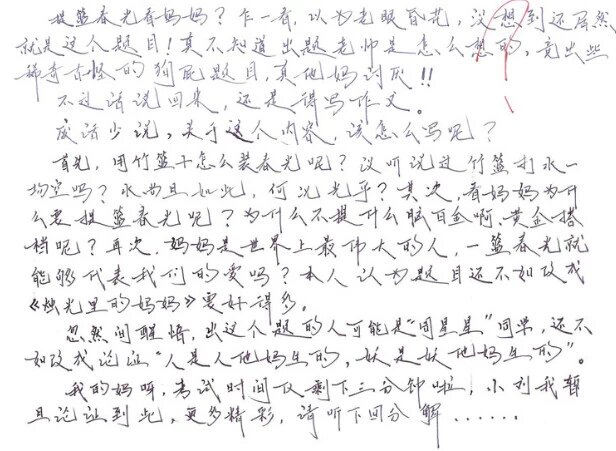 提篮春光看妈妈？乍一看，以为老眼昏花，没想到还居然
就是这个题目！真不知道出题老师是怎么想的，竟出些
稀奇古怪的狗屁题目，真他妈讨厌！！
不过话说回来，还是得写作文。
废话少说，关于这个内容，该怎么写呢？
首先，用竹篮子怎么装春光呢？没听说过竹篮打水一
场空吗？水尚且如此，何况光乎？其次，看妈妈为什
么要提篮春光呢？为什么不提什么脑白金啊，黄金搭
档呢？再次，妈妈是世界上最伟大的人，一篮春光就
能够代表我们的爱吗？本人认为题目还不如改成
《烛光里的妈妈》要好得多。
忽然间醒悟，出这个题的人可能是“周星星”同学，还不
如改成论证“人是人他妈生的，妖是妖他妈生的”。
我的妈呀，考试时间仅剩下三分钟啦，小刘我暂
且论证到此，更多精彩，请听下回分解……